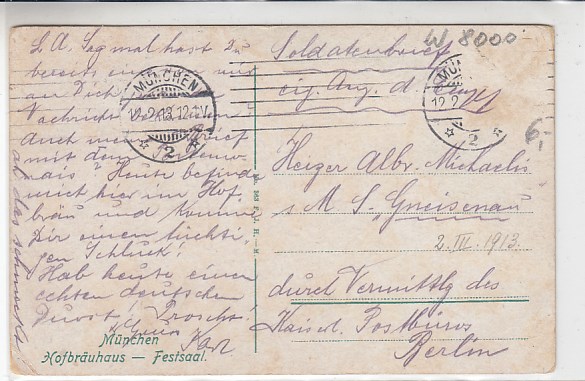 L. A. Sag mal hast Du
bereits
an Dich
Nachricht
Auch
mit dem
mais? Heute befinde
mich hier im Hof-
bräu und komme
Dir einen tüchti-
gen Schluck!
Hab heute einen
echten deutschen
Durst! Prosch!
Karl
ah das schmeckt
MÜNCHEN
2
Soldatenbrief
eig. Ang. d. Empf.
W, 8000
MÜN
12.2
2
6,-
Heizer Albr. Michaelis
S. M. S. Gneisenau
2. III. 1913.
durch Vermittlg des
Kaiserl. Postbüros
Berlin
München
Hofbräuhaus — Festsaal.